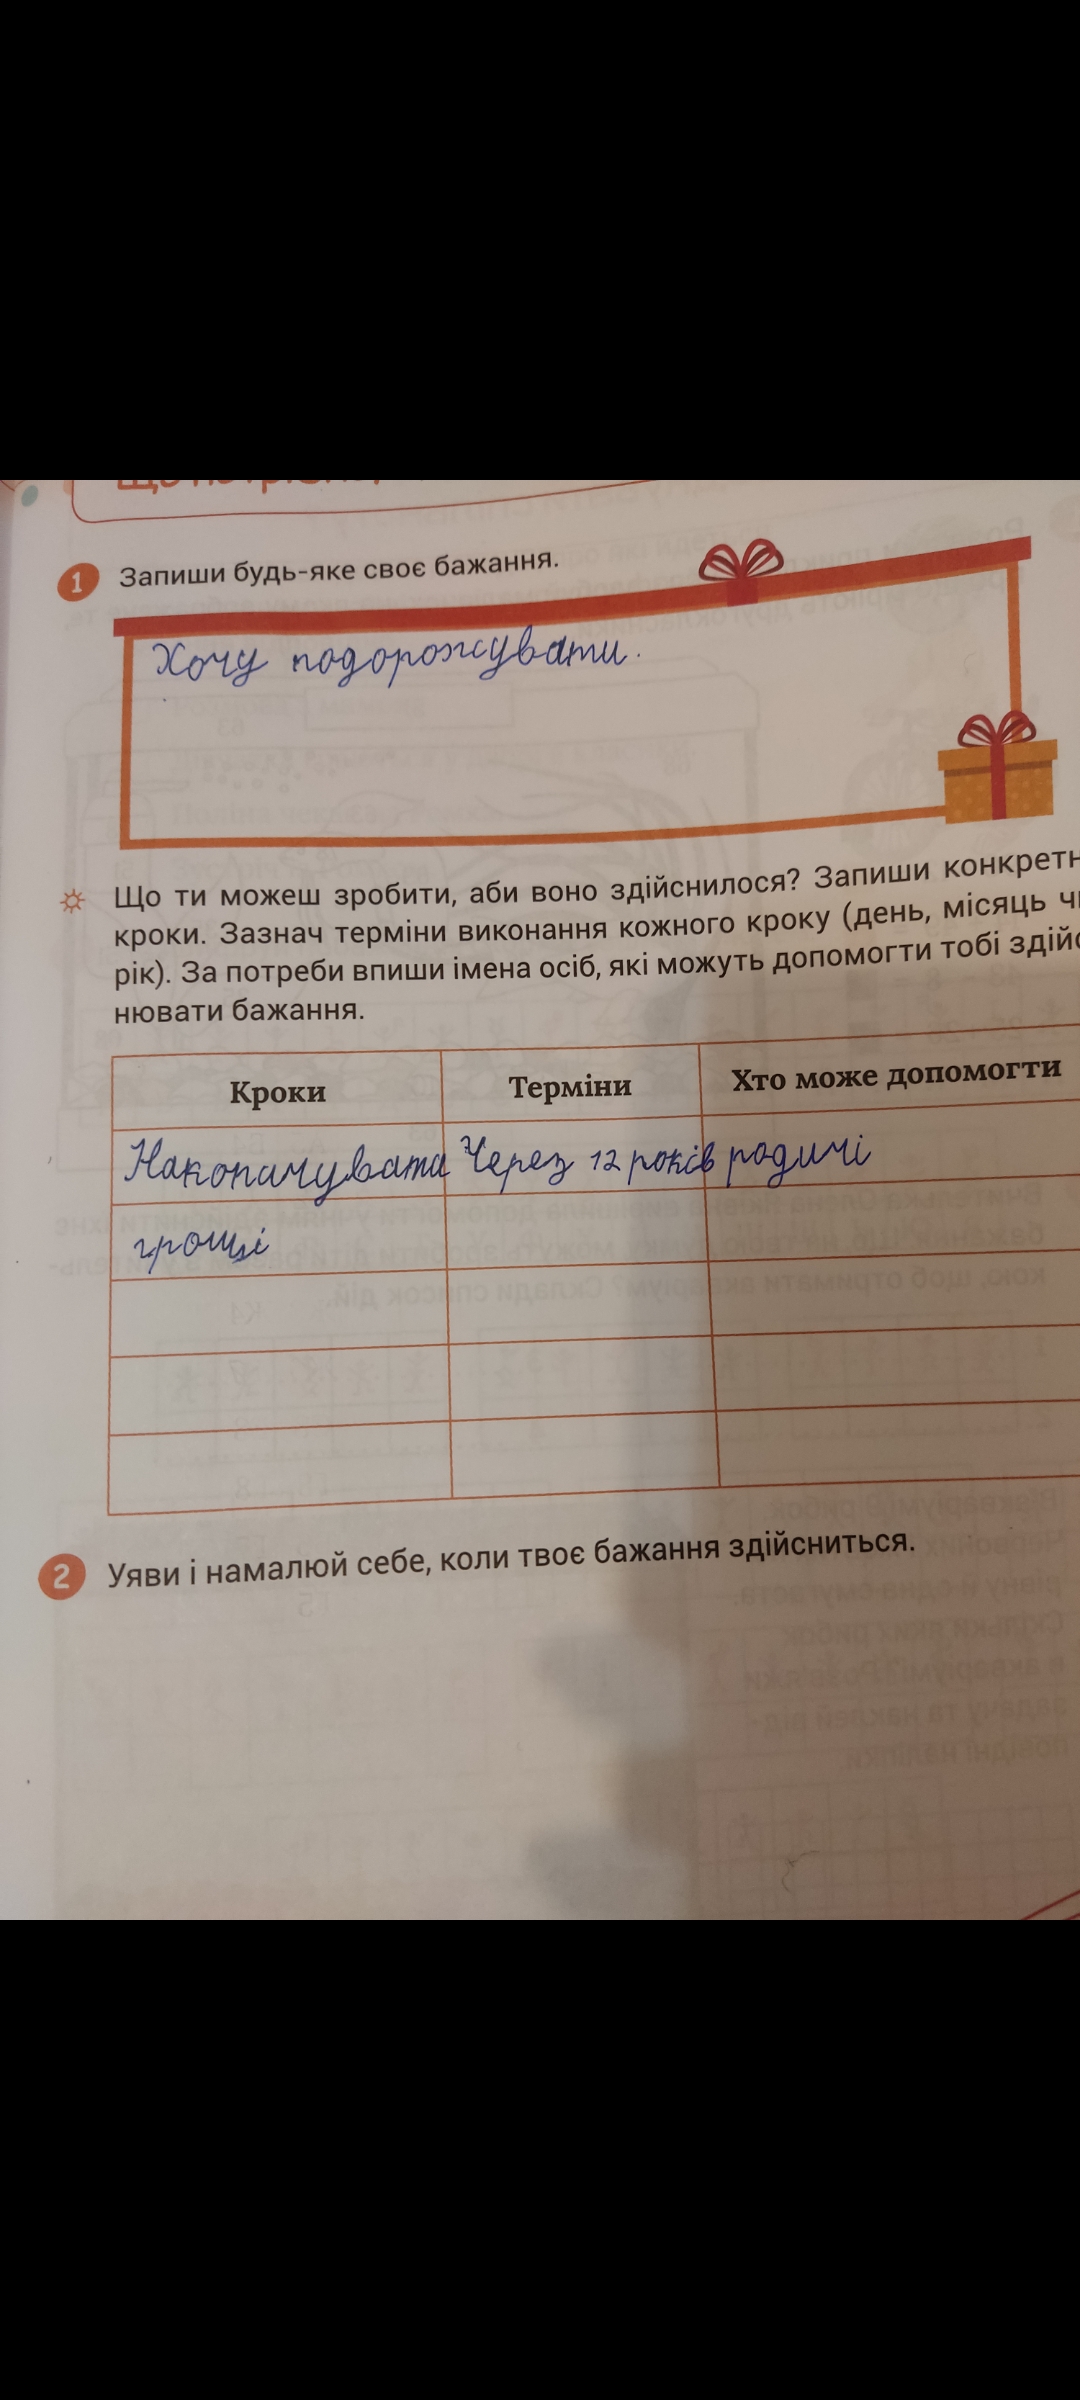 1 Запиши будь-яке своє бажання.
Хочу подорожувати.
Що ти можеш зробити, аби воно здійснилося? Запиши конкретн
кроки. Зазнач терміни виконання кожного кроку (день, місяць чи
рік). За потреби впиши імена осіб, які можуть допомогти тобі здійс
нювати бажання.
Кроки Терміни Хто може допомогти
Накопичувати Через 12 років родичі
гроші
2 Уяви і намалюй себе, коли твоє бажання здійсниться.